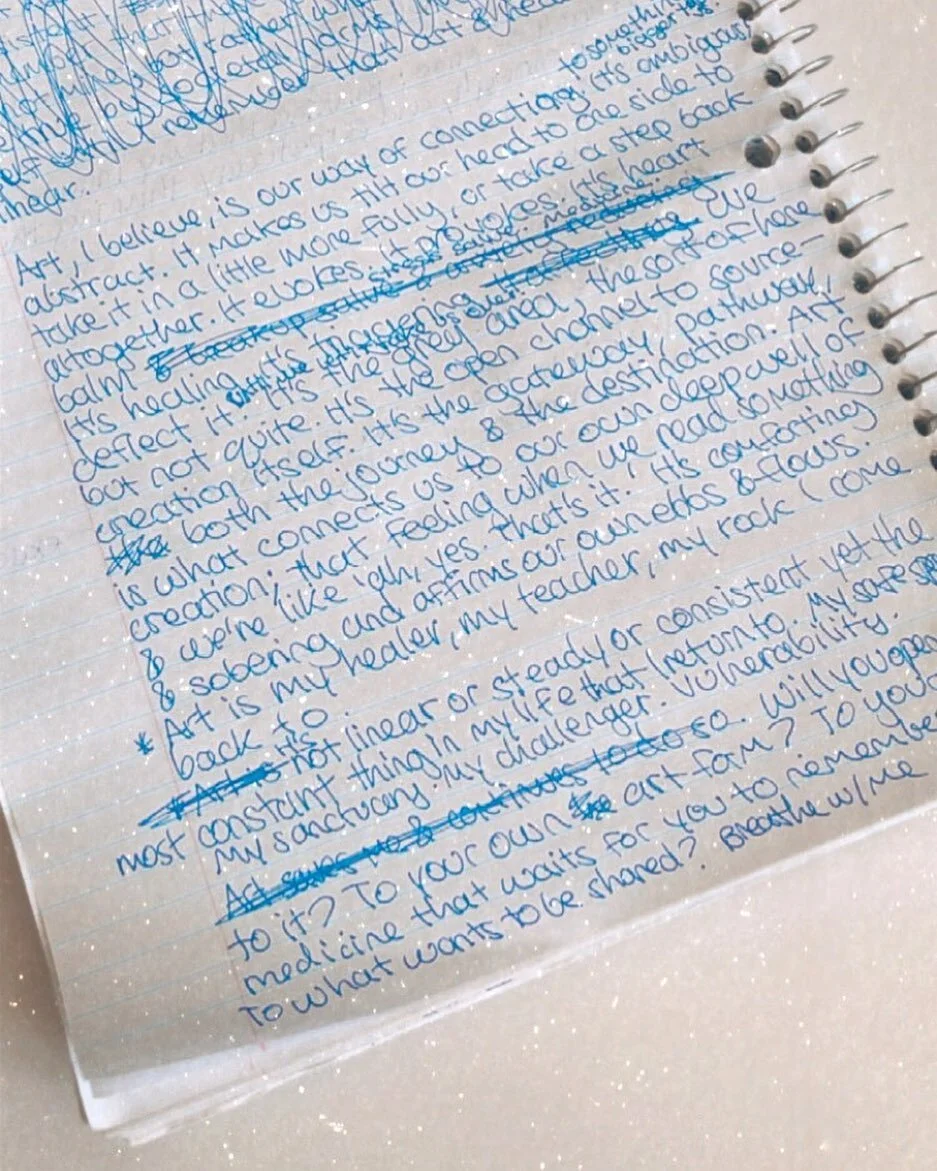 remember that art
linear.
to something bigger.
Art, I believe, is our way of connecting it's ambiguous
abstract. It makes us tilt our head to one side to
take it in a little more fully, or take a step back
altogether. It evokes. It provokes. It's heart
balm
It's healing it's triggering We
deflect it. It's the grey area, the sort of here
but not quite. It's the open channel to source-
creation itself. It's the gateway, pathway,
both the journey & the destination. Art
is what connects us to our own deep well of
creation; that feeling when we read something
& we're like 'ah, yes. That's it.' It's comforting
& sobering and affirms our own ebbs & flows.
Art is my healer, my teacher, my rock I come
back to.
* It's not linear or steady or consistent yet the
most constant thing in my life that I return to. My safe
My sanctuary. My challenger. Vulnerability.
Art saves me & continues to do so. Will you open
to it? To your own art form? To your
medicine that waits for you to remember
To what wants to be shared? Breathe w/ me